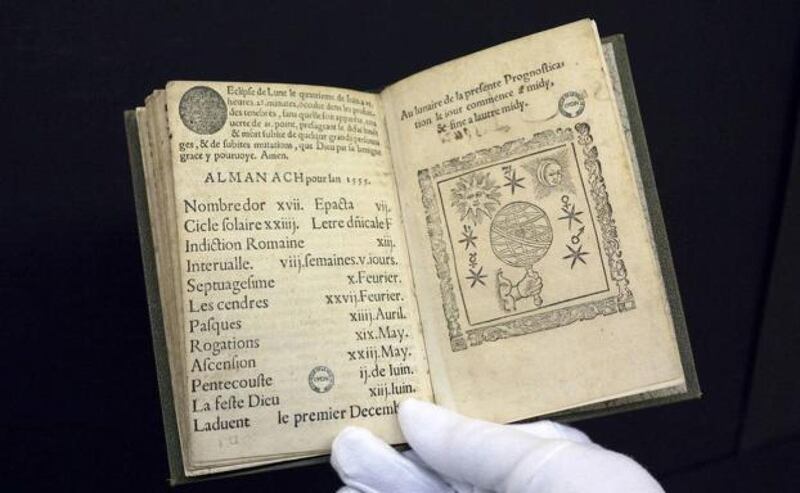 Eclipse de Lune le quatriéme de Iuin a xj.
heures 21. minutes, occulte dens les profun-
des tenebres, sans quelle soit apparête, cou-
uerte de 21. point, presageant le de
& mort subite de quelque grand personna
ges, & de subites mutations, que Dieu par sa benigne
grace y pouruoye. Amen.
ALMANACH pour lan 1555.
Nombre dor xvii. Epacta vij.
Cicle solaire xxiiij. Letre dñicale F
Indiction Romaine xiij.
Interualle. viij.semaines.v.iours.
Septuagesime x.Feurier.
Les cendres xxvij.Feurier.
Pasques xiiij.Auril.
Rogations xix.May.
Ascension xxiij.May.
Pentecouste ij.de Iuin.
La feste Dieu xiij.Iuin.
Laduent le premier Decemb
Au lunaire de la presente Prognostica-
tion le iour commence a midy,
& fine a lautre midy.